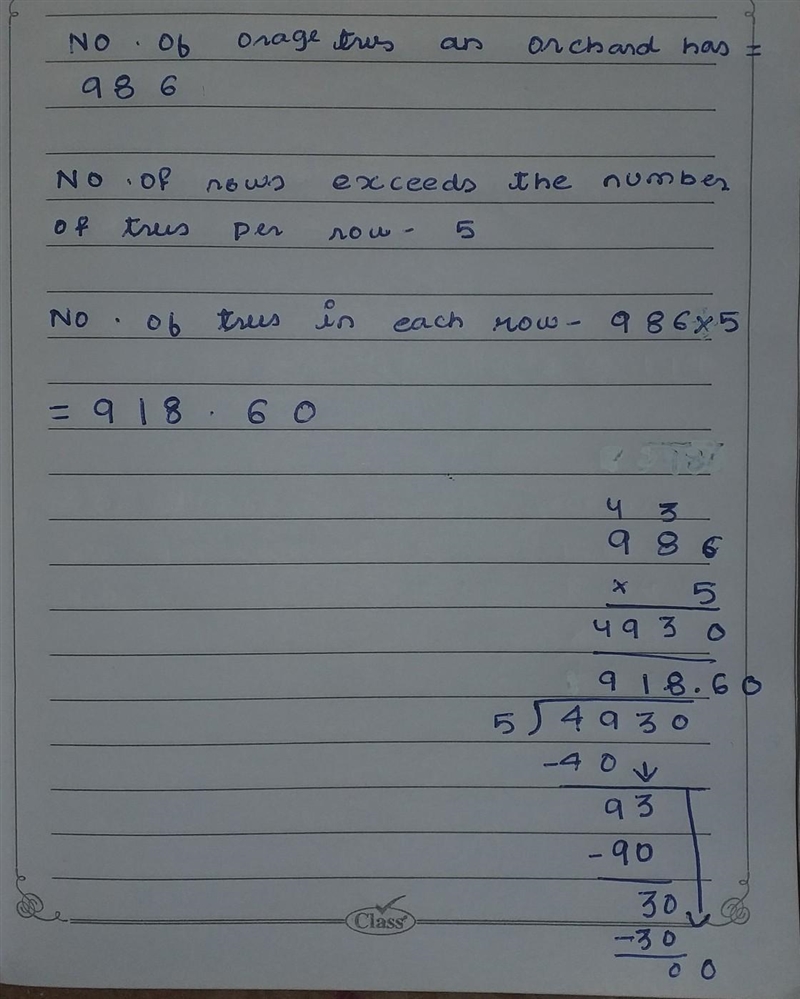 No. Of orage trus an orchard has =
986
No. Of rows exceeds the number
of trus per row - 5
No. Of trus in each row - 986x5
= 918.60
4 3
986
x 5
4930
918.60
5)4930
-40
93
-90
30
-30
00
Class